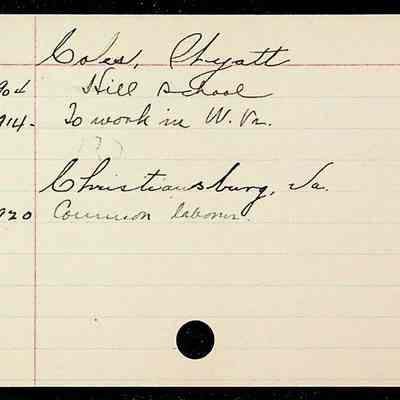 Coles, Wyatt
904 Hill School
914- To work in W. Va.
Christiansburg, Va.
920 Common laborer.